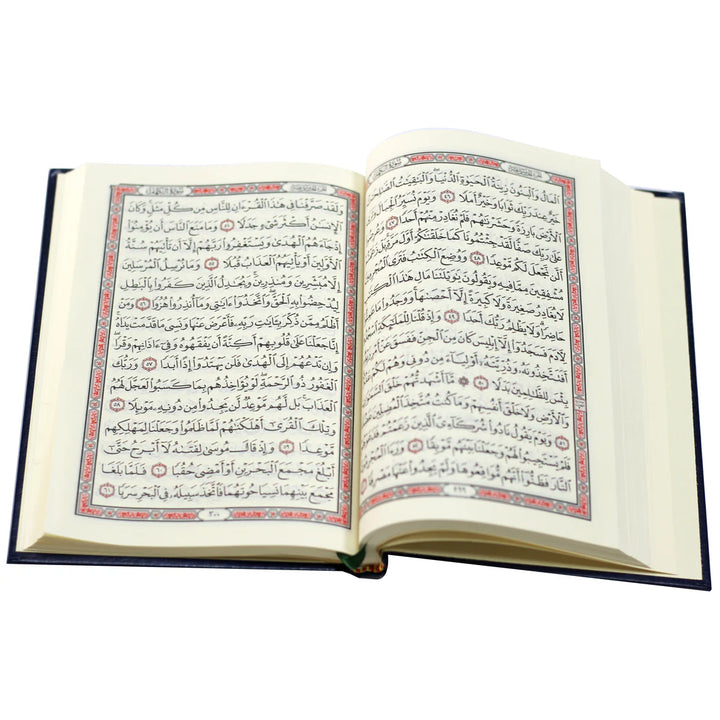 سُورَةُ الكَهْفِ
ٱلْمَالُ وَٱلْبَنُونَ زِينَةُ ٱلْحَيَوٰةِ ٱلدُّنْيَا وَٱلْبَٰقِيَٰتُ ٱلصَّٰلِحَٰتُ
خَيْرٌ عِندَ رَبِّكَ ثَوَابًا وَخَيْرٌ أَمَلًا ٤٦ وَيَوْمَ نُسَيِّرُ ٱلْجِبَالَ وَتَرَى
ٱلْأَرْضَ بَارِزَةً وَحَشَرْنَٰهُمْ فَلَمْ نُغَادِرْ مِنْهُمْ أَحَدًا ٤٧ وَعُرِضُوا۟
عَلَىٰ رَبِّكَ صَفًّا لَّقَدْ جِئْتُمُونَا كَمَا خَلَقْنَٰكُمْ أَوَّلَ مَرَّةٍۭ بَلْ زَعَمْتُمْ
أَلَّن نَّجْعَلَ لَكُم مَّوْعِدًا ٤٨ وَوُضِعَ ٱلْكِتَٰبُ فَتَرَى ٱلْمُجْرِمِينَ
مُشْفِقِينَ مِمَّا فِيهِ وَيَقُولُونَ يَٰوَيْلَتَنَا مَالِ هَٰذَا ٱلْكِتَٰبِ
لَا يُغَادِرُ صَغِيرَةً وَلَا كَبِيرَةً إِلَّآ أَحْصَىٰهَا وَوَجَدُوا۟ مَا عَمِلُوا۟
حَاضِرًا وَلَا يَظْلِمُ رَبُّكَ أَحَدًا ٤٩ وَإِذْ قُلْنَا لِلْمَلَٰٓئِكَةِ ٱسْجُدُوا۟
لِءَادَمَ فَسَجَدُوٓا۟ إِلَّآ إِبْلِيسَ كَانَ مِنَ ٱلْجِنِّ فَفَسَقَ عَنْ أَمْرِ رَبِّهِۦٓ
أَفَتَتَّخِذُونَهُۥ وَذُرِّيَّتَهُۥٓ أَوْلِيَآءَ مِن دُونِى وَهُمْ لَكُمْ عَدُوٌّۢ
بِئْسَ لِلظَّٰلِمِينَ بَدَلًا ٥٠ مَّآ أَشْهَدتُّهُمْ خَلْقَ ٱلسَّمَٰوَٰتِ
وَٱلْأَرْضِ وَلَا خَلْقَ أَنفُسِهِمْ وَمَا كُنتُ مُتَّخِذَ ٱلْمُضِلِّينَ عَضُدًا
٥١ وَيَوْمَ يَقُولُ نَادُوا۟ شُرَكَآءِىَ ٱلَّذِينَ زَعَمْتُمْ فَدَعَوْهُمْ
فَلَمْ يَسْتَجِيبُوا۟ لَهُمْ وَجَعَلْنَا بَيْنَهُم مَّوْبِقًا ٥٢ وَرَءَا ٱلْمُجْرِمُونَ
ٱلنَّارَ فَظَنُّوٓا۟ أَنَّهُم مُّوَاقِعُوهَا وَلَمْ يَجِدُوا۟ عَنْهَا مَصْرِفًا ٥٣
٢٩٩
سُورَةُ الكَهْفِ
وَلَقَدْ صَرَّفْنَا فِى هَٰذَا ٱلْقُرْءَانِ لِلنَّاسِ مِن كُلِّ مَثَلٍ وَكَانَ
ٱلْإِنسَٰنُ أَكْثَرَ شَىْءٍ جَدَلًا ٥٤ وَمَا مَنَعَ ٱلنَّاسَ أَن يُؤْمِنُوٓا۟
إِذْ جَآءَهُمُ ٱلْهُدَىٰ وَيَسْتَغْفِرُوا۟ رَبَّهُمْ إِلَّآ أَن تَأْتِيَهُمْ سُنَّةُ
ٱلْأَوَّلِينَ أَوْ يَأْتِيَهُمُ ٱلْعَذَابُ قُبُلًا ٥٥ وَمَا نُرْسِلُ ٱلْمُرْسَلِينَ
إِلَّا مُبَشِّرِينَ وَمُنذِرِينَ وَيُجَٰدِلُ ٱلَّذِينَ كَفَرُوا۟ بِٱلْبَٰطِلِ
لِيُدْحِضُوا۟ بِهِ ٱلْحَقَّ وَٱتَّخَذُوٓا۟ ءَايَٰتِى وَمَآ أُنذِرُوا۟ هُزُوًا ٥٦ وَمَنْ
أَظْلَمُ مِمَّن ذُكِّرَ بِـَٔايَٰتِ رَبِّهِۦ فَأَعْرَضَ عَنْهَا وَنَسِىَ مَا قَدَّمَتْ يَدَاهُ
إِنَّا جَعَلْنَا عَلَىٰ قُلُوبِهِمْ أَكِنَّةً أَن يَفْقَهُوهُ وَفِىٓ ءَاذَانِهِمْ وَقْرًا
وَإِن تَدْعُهُمْ إِلَى ٱلْهُدَىٰ فَلَن يَهْتَدُوٓا۟ إِذًا أَبَدًا ٥٧ وَرَبُّكَ
ٱلْغَفُورُ ذُو ٱلرَّحْمَةِ لَوْ يُؤَاخِذُهُم بِمَا كَسَبُوا۟ لَعَجَّلَ لَهُمُ
ٱلْعَذَابَ بَل لَّهُم مَّوْعِدٌ لَّن يَجِدُوا۟ مِن دُونِهِۦ مَوْئِلًا ٥٨
وَتِلْكَ ٱلْقُرَىٰٓ أَهْلَكْنَٰهُمْ لَمَّا ظَلَمُوا۟ وَجَعَلْنَا لِمَهْلِكِهِم
مَّوْعِدًا ٥٩ وَإِذْ قَالَ مُوسَىٰ لِفَتَىٰهُ لَآ أَبْرَحُ حَتَّىٰٓ
أَبْلُغَ مَجْمَعَ ٱلْبَحْرَيْنِ أَوْ أَمْضِىَ حُقُبًا ٦٠ فَلَمَّا بَلَغَا
مَجْمَعَ بَيْنِهِمَا نَسِيَا حُوتَهُمَا فَٱتَّخَذَ سَبِيلَهُۥ فِى ٱلْبَحْرِ سَرَبًا ٦١
٣٠٠